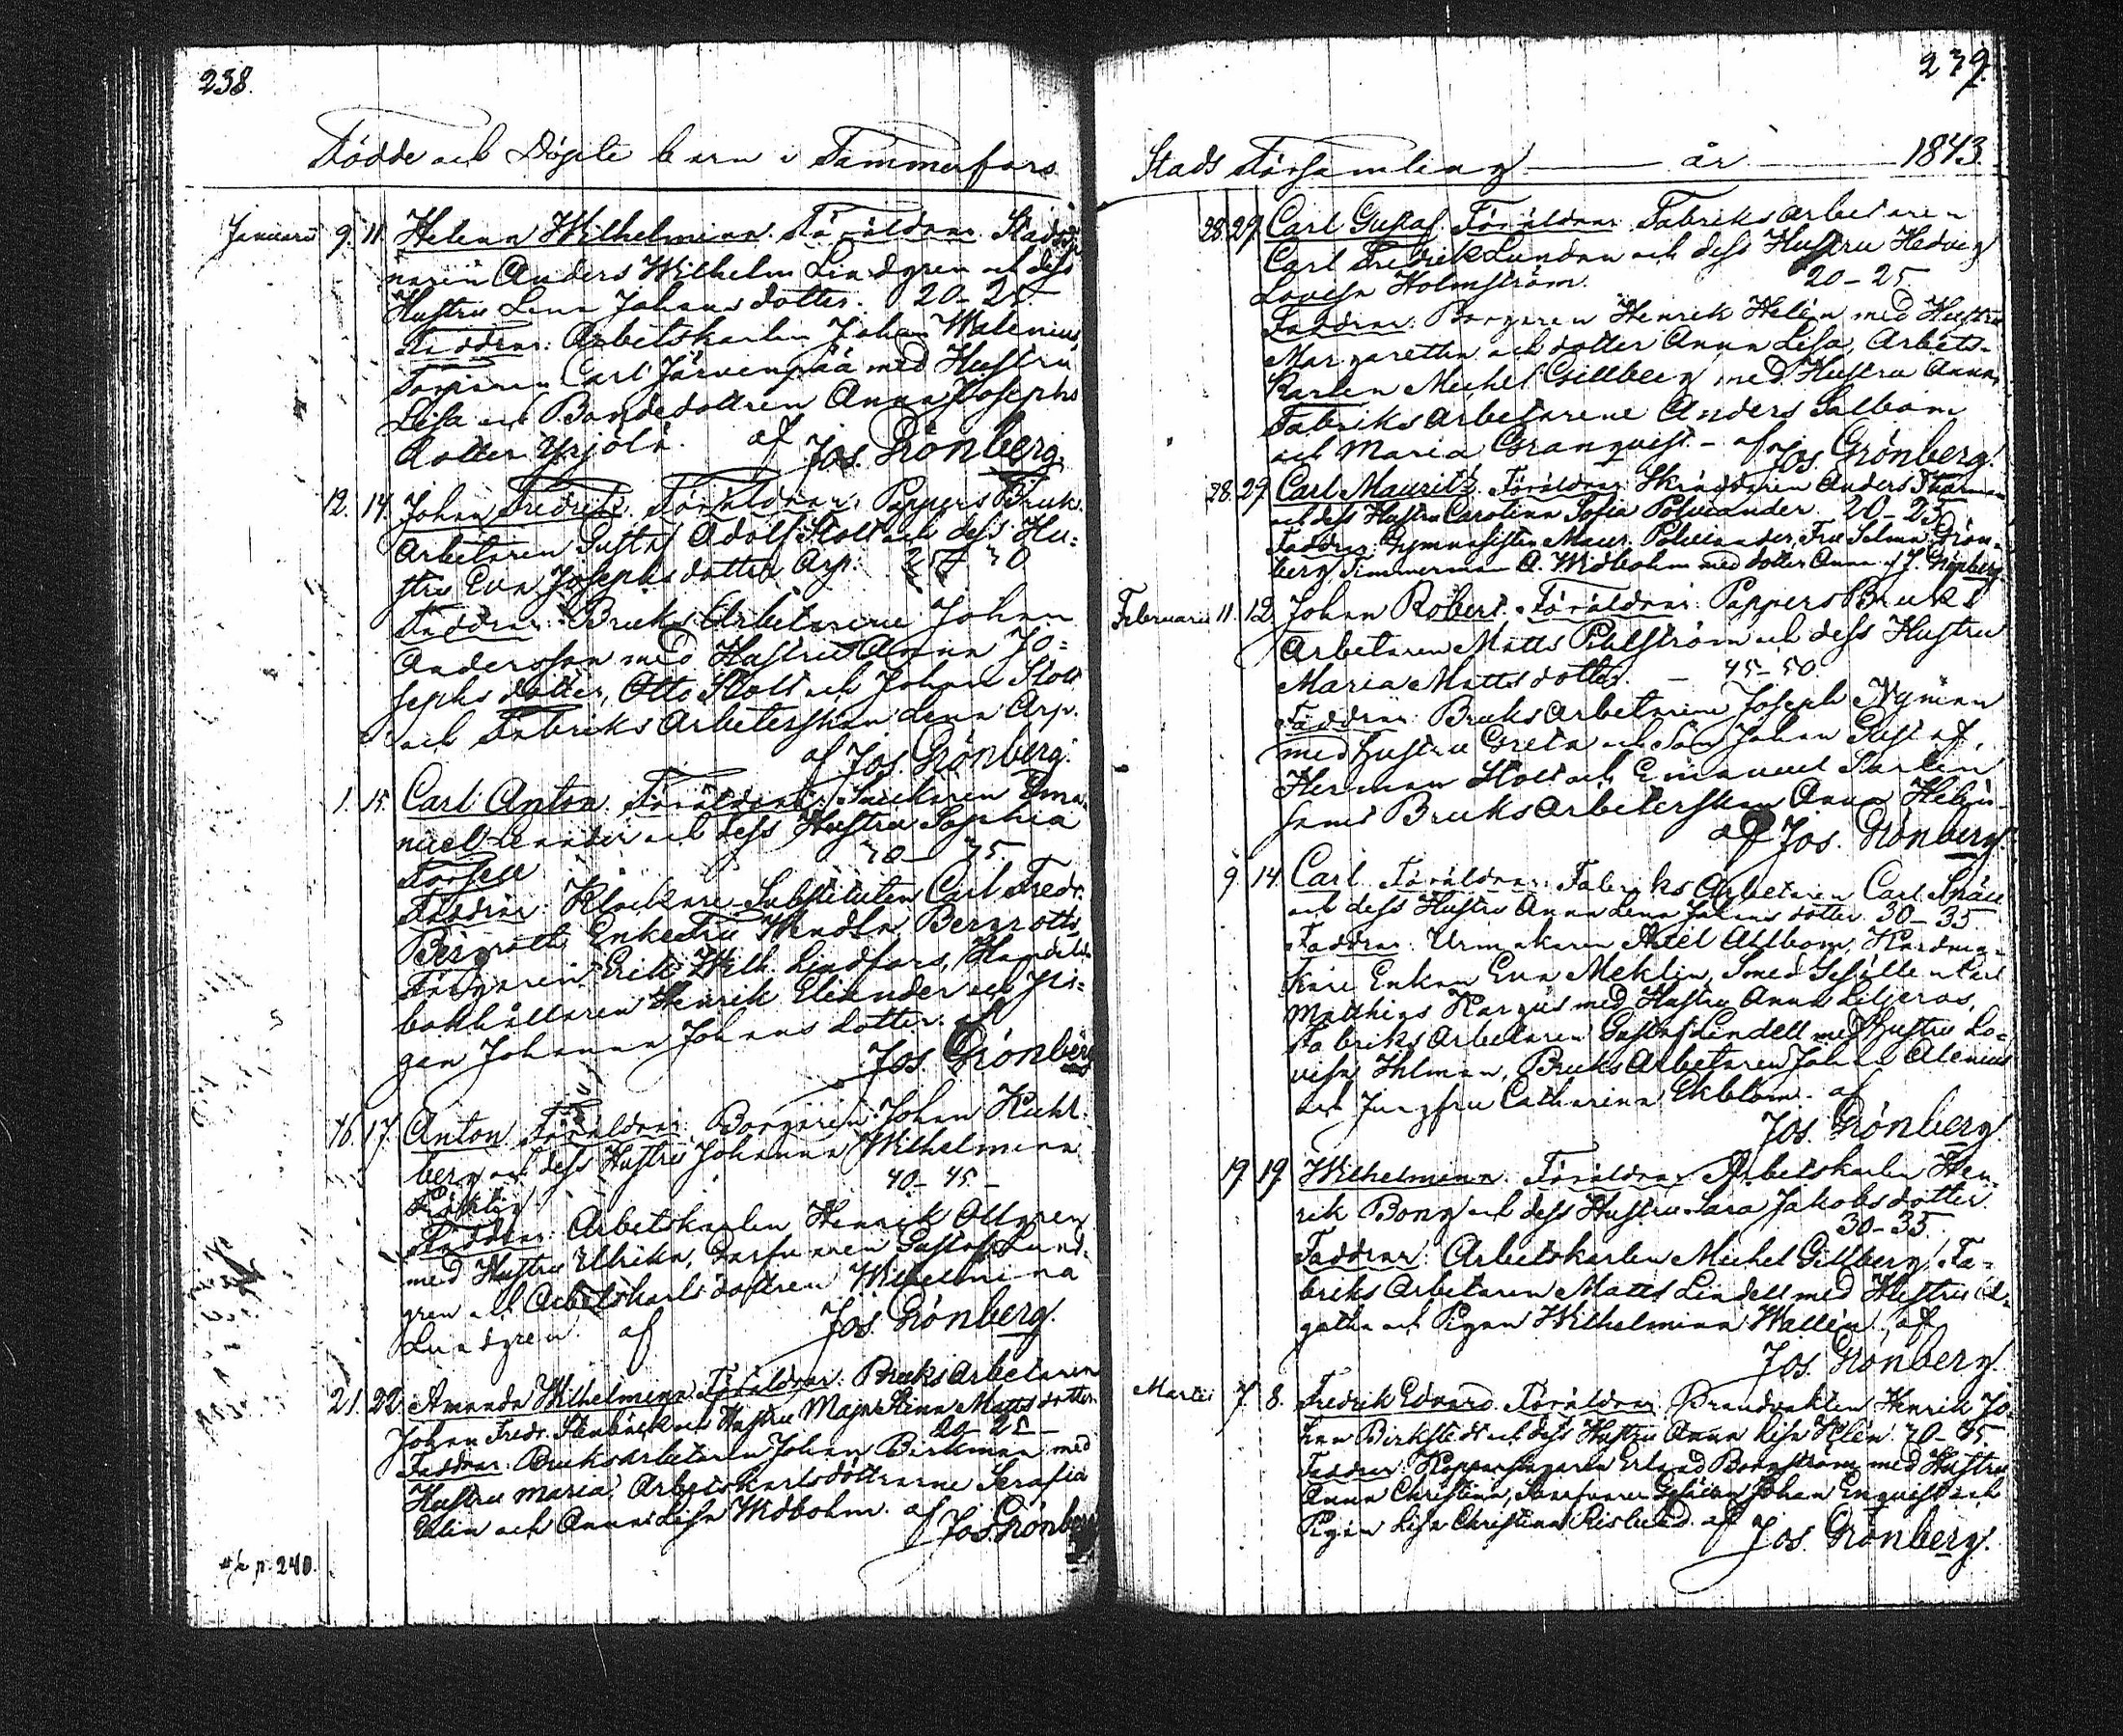 238.
Födde och Döpte barn i Tammerfors
Januarii 9. 11. Helena Wilhelmina. Föräldrar: Stadstje=
naren Anders Wilhelm Lindgren och dess
Hustru Lena Johansdotter. 20-25
Faddrar: Arbetskarlen Johan Walenius,
Torparen Carl Järvenpää med Hustru
Lisa och Bondedottren Anna Josephs
dotter Yrjölä. af Jos. Grönberg.
12. 14. Johan Fredrik. Föräldrar: Pappers Bruks
Arbetaren Gustaf Adolf Stolt och dess Hu=
stru Eva Josephsdotter Arp. 25 30
Faddrar: Bruks Arbetarene Johan
Andersson med Hustru Anna Jo=
sephs dotter, Otto Stolt och Johan Stolt
och Fabriks Arbeterskan Lena Arp.
af Jos. Grönberg.
1. 15. Carl Anton. Föräldrar: Ema=
nuel Leander och dess Hustru Sophia
Forsell 70 75.
Faddrar: Klockare Substituten Carl Fredr.
Bergroth, Enkefru Wendla Bergroth,
Färgaren Erik Wilh. Lindfors, Handels
bokhållaren Henrik Eleander och Pi=
gan Johanna Johansdotter. af
Jos. Grönberg
16. 17. Anton. Föräldrar: Borgaren Johan Kuhl
berg och dess Hustru Johanna Wilhelmina
40-45-
Faddrar: Arbetskarlen Henrik Ottgren
med Hustru Ulrika, Gustaf Lund=
gren och Arbetskarlsdottren Wilhelmina
Lundgren. af Jos. Grönberg.
21. 22. Amanda Wilhelmina. Föräldrar: Bruks Arbetaren
Johan Fredr. Stenbäck och Hustru Maja Stina Mattsdotter
20-25-
Faddrar: Bruksarbetaren Johan Birkman med
Hustru Maria, Arbetskarlsdöttrarne Serafia
Ulin och Anna Lisa Widbohm. af Jos. Grönberg
p. 240.
239.
Stads Församling år 1843.
28. 29. Carl Gustaf. Föräldrar: Fabriks arbetaren
Carl Fredrik Lundan och dess Hustru Hedvig
Lovisa Holmström. 20-25
Faddrar: Borgaren Henrik Helin med Hustru
Margaretha och dotter Anna Lisa, Arbets-
Karlen Michel Gillberg med Hustru Anna,
Fabriks arbetarene Anders Salbom
och Maria Granqvist. - af Jos. Grönberg.
28. 29. Carl Mauritz. Föräldrar: Skräddaren Anders Tharman
och dess Hustru Carolina Sofia Polviander. 20-25
Faddrar: Gymnasisten Maur. Polviander, Fru Selma Grön=
berg, Timmerman A. Widbohm med dotter Anna af J. Grönberg
Februarii 11. 12. Johan Robert. Föräldrar: Pappers Bruks
Arbetaren Matts Pihlström och dess Hustru
Maria Mattsdotter. - 45-50.
Faddrar: Bruks Arbetaren Joseph Nyman
med hustru Greta och Son Johan Gustaf,
Herman Stolt och Emanuel Sarlin
samt Bruks Arbeterskan Anna Helin-
af Jos. Grönberg.
9. 14. Carl. Föräldrar: Fabriks Arbetaren Carl
och dess Hustru Anna Lena Johansdotter. 30-35.
Faddrar: Urmakaren Axel Ahlbom, Kardma-
kare Enkan Eva Meklin, Smed Gesällen
Matthias Hargus med Hustru Anna Liljeros,
Fabriks Arbetaren Gustaf Lindell med Hustru Lo=
visa Ihlman, Bruks Arbetaren Johan Alenius
och Jungfru Catharina Ekblom. af
Jos. Grönberg.
19. 19. Wilhelmina. Föräldrar: Arbetskarlen Hen=
rik Bong och dess Hustru Sara Jakobsdotter.
30-35.
Faddrar: Arbetskarlen Michel Gillberg, Fa=
briks Arbetaren Matts Lindell med Hustru A=
gatha och Pigan Wilhelmina Wallin. af
Jos. Grönberg.
Martii 7. 8. Fredrik Edvard. Föräldrar: Brandvakten Henrik Jo=
han Birkstedt och dess Hustru Anna Lisa Helin.
Faddrar: Kopparslagaren Erland Borgström med Hustru
Anna Christina, Johan Enqvist och
Pigan Lisa Christina Rislund. af Jos. Grönberg.